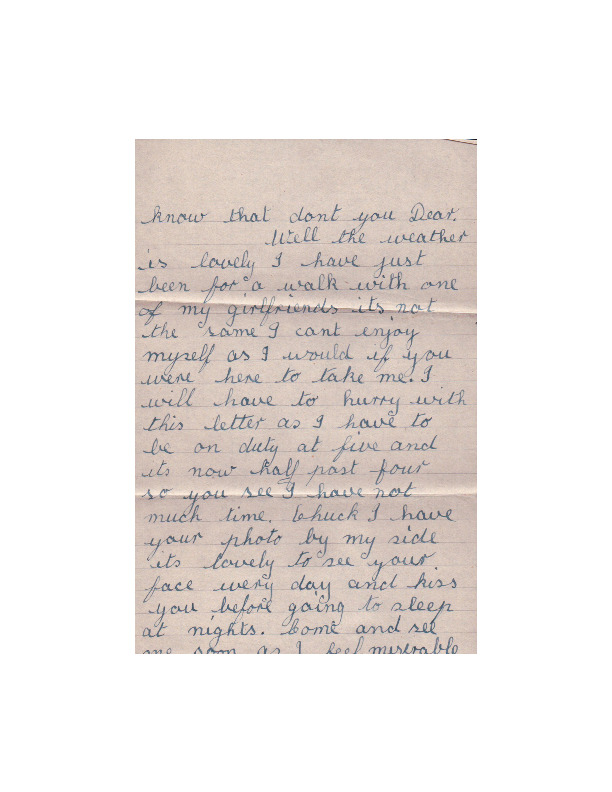 know that dont you Dear.
Well the weather
is lovely I have just
been for a walk with one
of my girlfriends its not
the same I cant enjoy
myself as I would if you
were here to take me. I
will have to hurry with
this letter as I have to
be on duty at five and
its now half past four
so you see I have not
much time. Chuck I have
your photo by my side
its lovely to see your
face every day and kiss
you before going to sleep
at nights. Come and see
me soon as I feel miserable